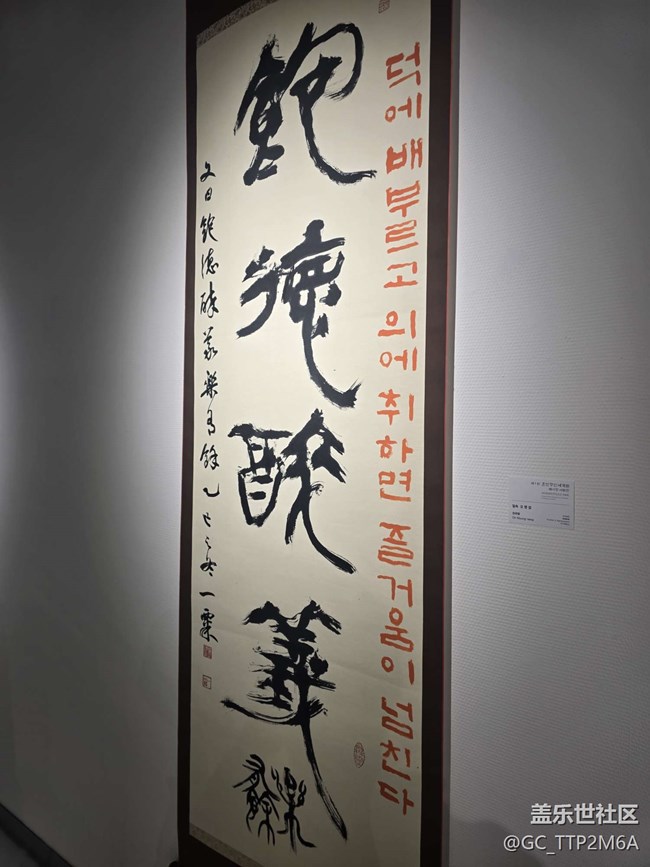 덕에 배부르고 의에 취하면 즐거움이 넘친다
飽德醉義
樂有餘
文曰飽德醉義樂有餘 乙巳之冬 一
盖乐世社区
@GC_TTP2M6A